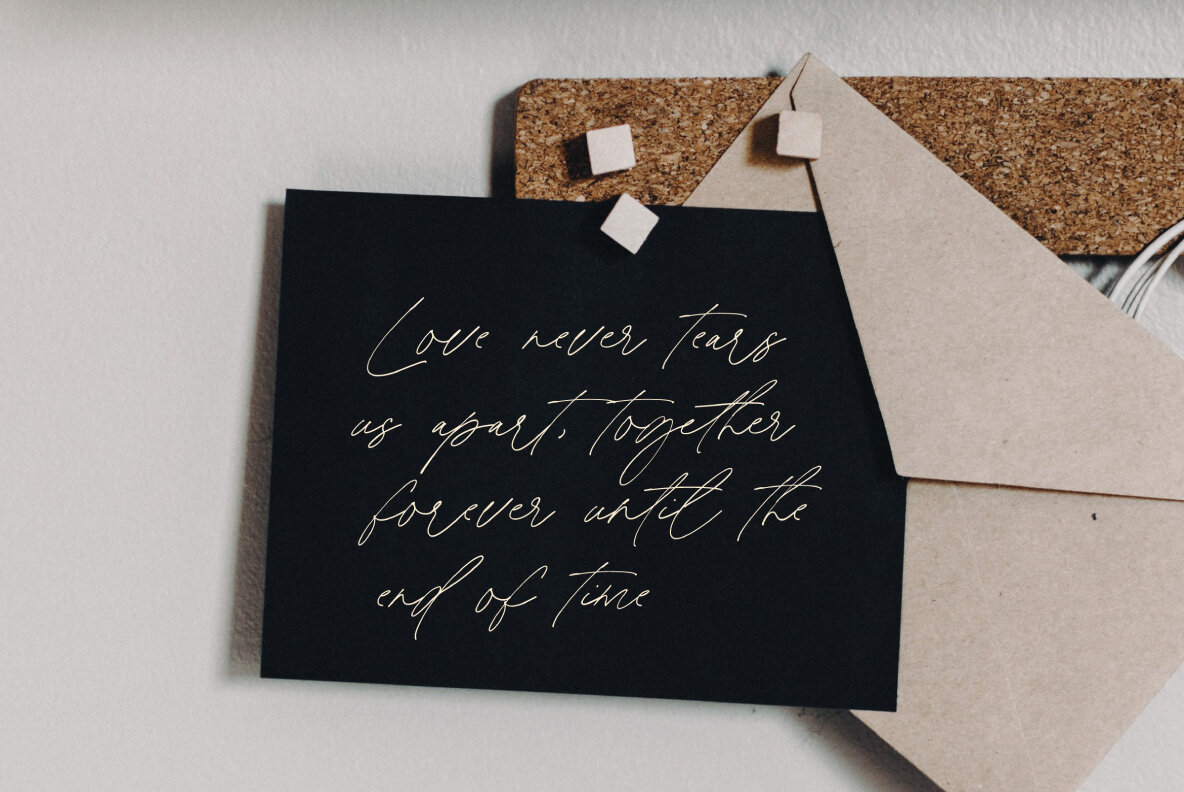 Love never tears
us apart, together
forever until the
end of time